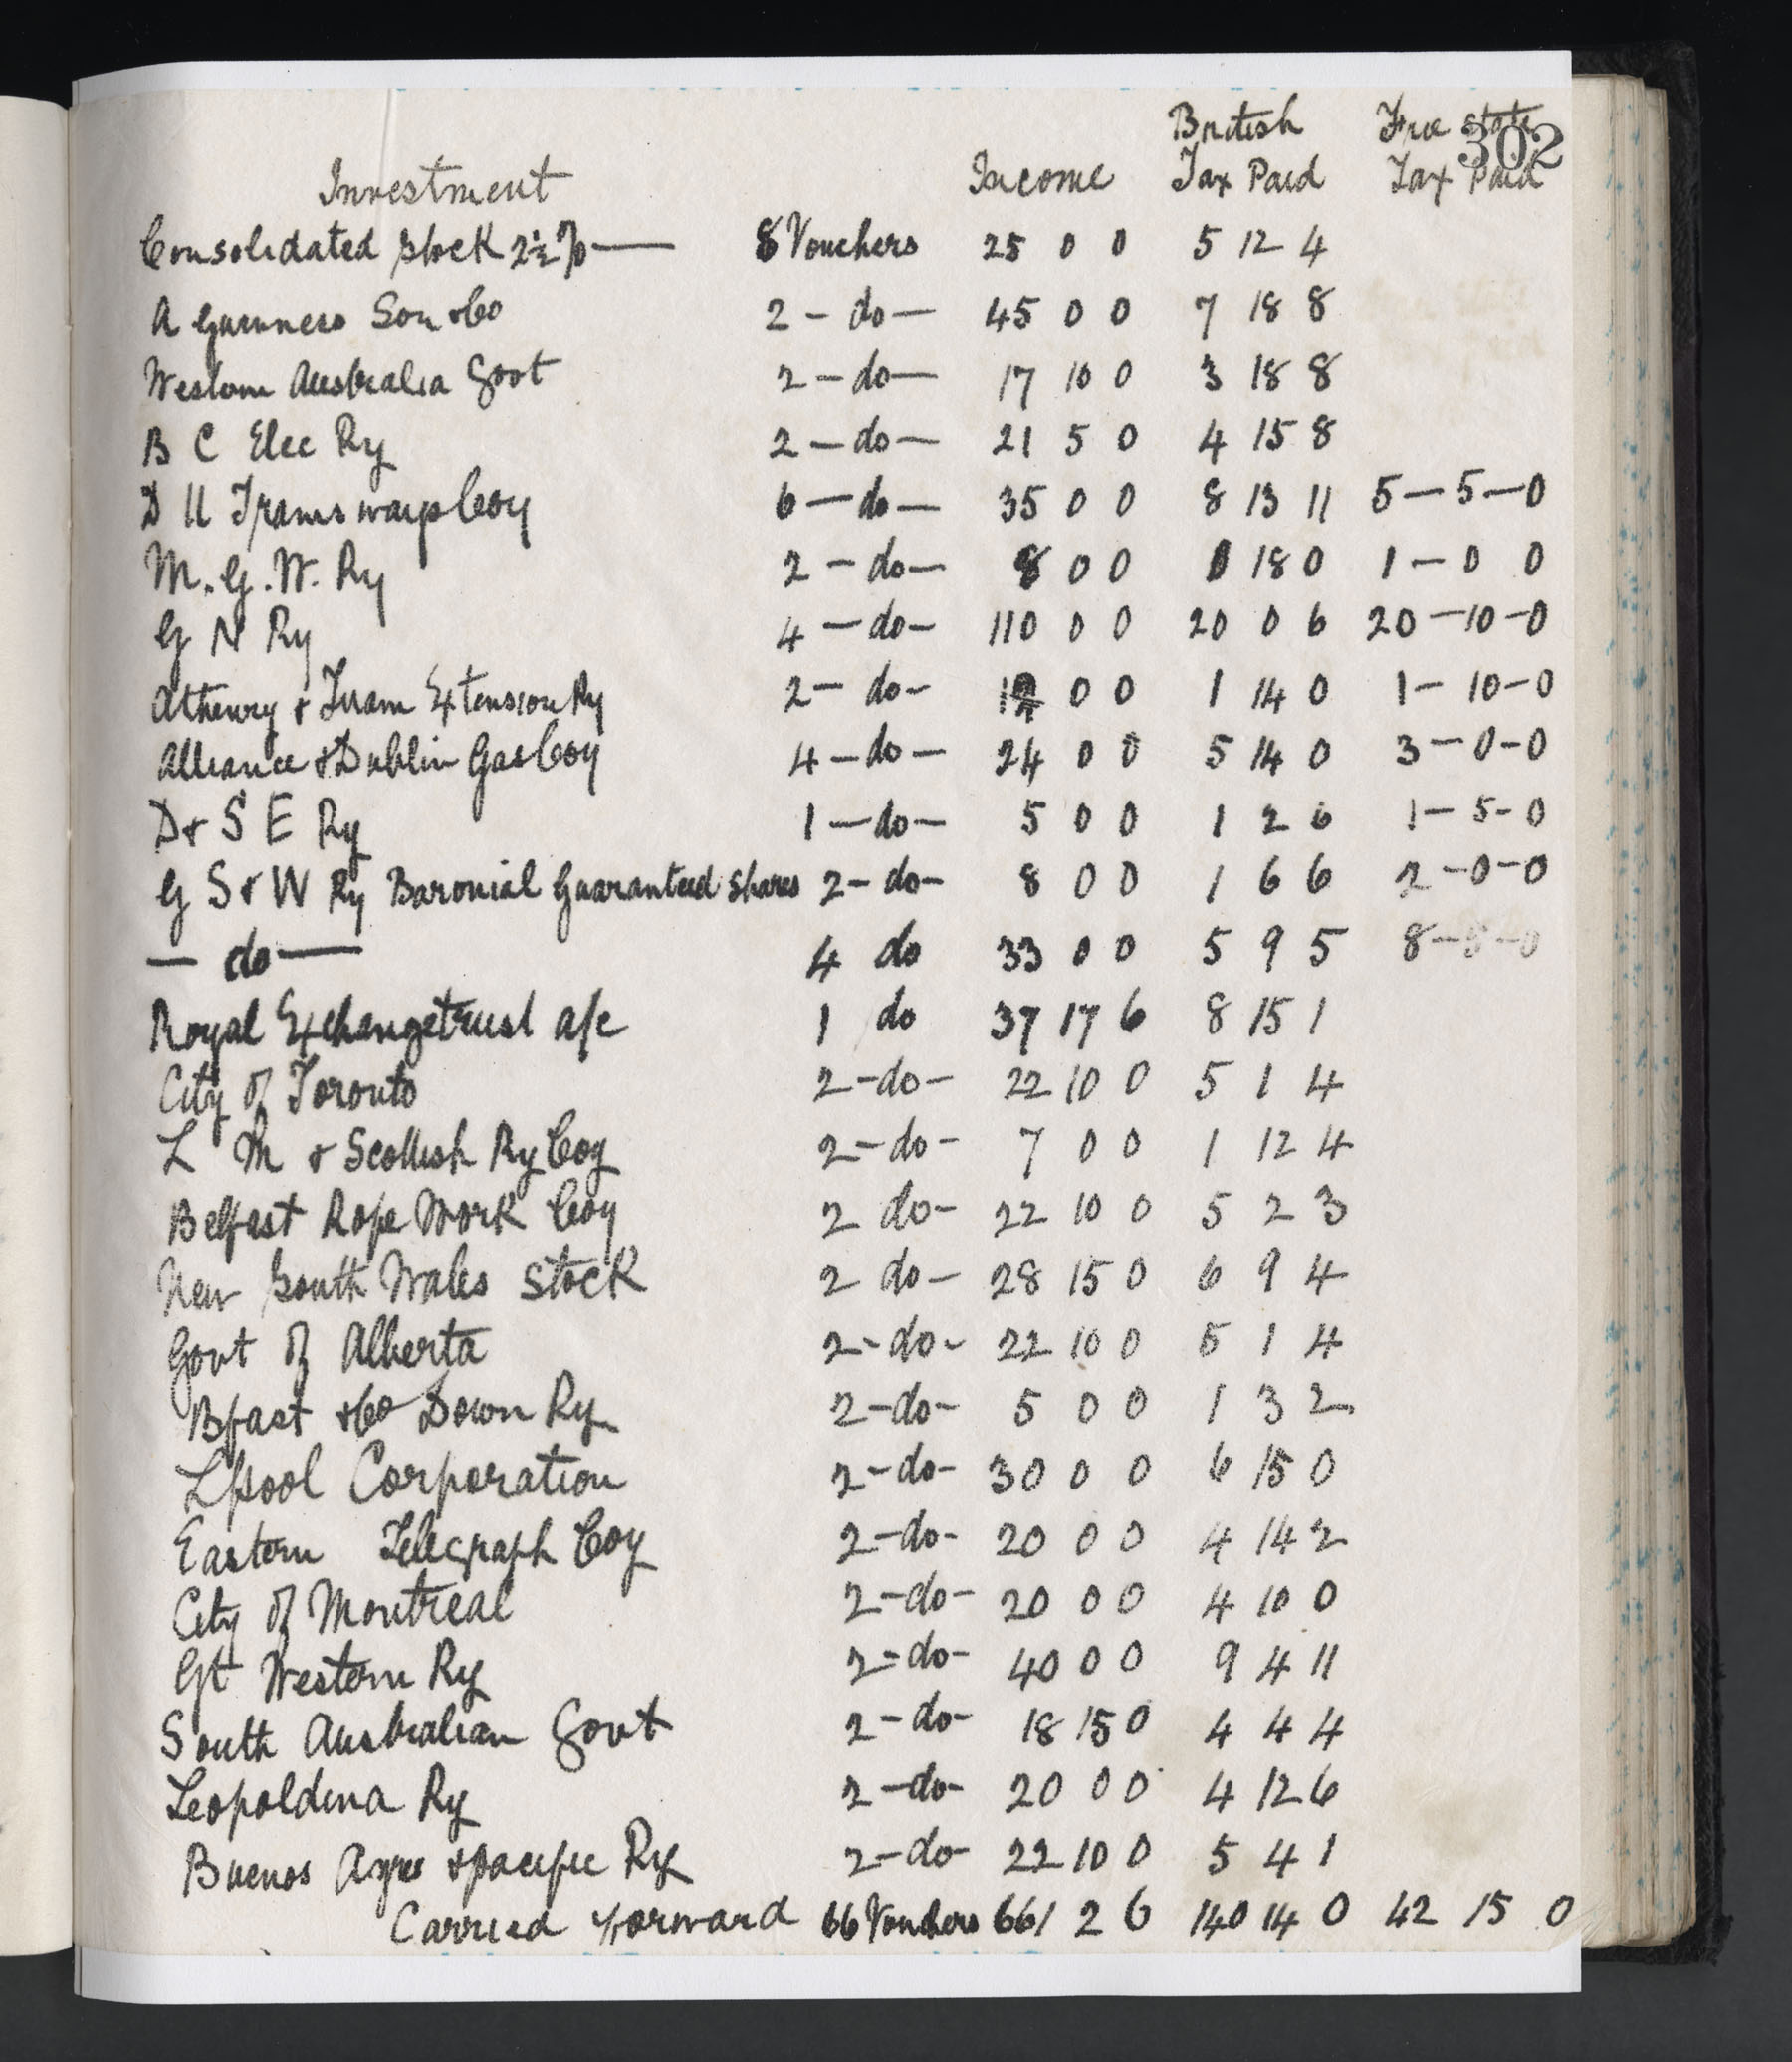 British Free State
302
Investment Income Tax Paid Tax Paid
Consolidated Stock 2½% — 8 Vouchers 25 0 0 5 12 4
A Guinness Son & Co 2 - do — 45 0 0 7 18 8
Western Australia Govt 2 - do — 17 10 0 3 18 8
B C Elec Ry 2 - do — 21 5 0 4 15 8
D U Tramsways Coy 6 - do — 35 0 0 8 13 11 5 - 5 - 0
M. G. W. Ry 2 - do — 8 0 0 18 0 1 - 0 0
G N Ry 4 - do - 110 0 0 20 0 6 20 - 10 - 0
Athenry & Tuam Extension Ry 2 - do - 0 0 1 14 0 1 - 10 - 0
Alliance & Dublin Gas Coy 4 - do - 24 0 0 5 14 0 3 - 0 - 0
D & S E Ry 1 - do - 5 0 0 1 2 6 1 - 5 - 0
G S & W Ry Baronial Guaranteed Shares 2 - do - 8 0 0 1 6 6 2 - 0 - 0
— do — 4 do 33 0 0 5 9 5 8 - 5 - 0
Royal Exchange trust a/c 1 do 37 17 6 8 15 1
City of Toronto 2 - do - 22 10 0 5 1 4
L M & Scottish Ry Coy 2 - do - 7 0 0 1 12 4
Belfast Rope Work Coy 2 do - 22 10 0 5 2 3
New South Wales Stock 2 do - 28 15 0 6 9 4
Govt of Alberta 2 - do - 22 10 0 5 1 4
Bfast & Co Down Ry 2 - do - 5 0 0 1 3 2
Lpool Corporation 2 - do - 30 0 0 6 15 0
Eastern Telegraph Coy 2 - do - 20 0 0 4 14 2
City of Montreal 2 - do - 20 0 0 4 10 0
Gt Western Ry 2 - do - 40 0 0 9 4 11
South Australian Govt 2 - do - 18 15 0 4 4 4
Leopoldina Ry 2 - do - 20 0 0 4 12 6
Buenos Ayres & pacific Ry 2 - do - 22 10 0 5 4 1
Carried Forward 66 Vouchers 661 2 6 140 14 0 42 15 0